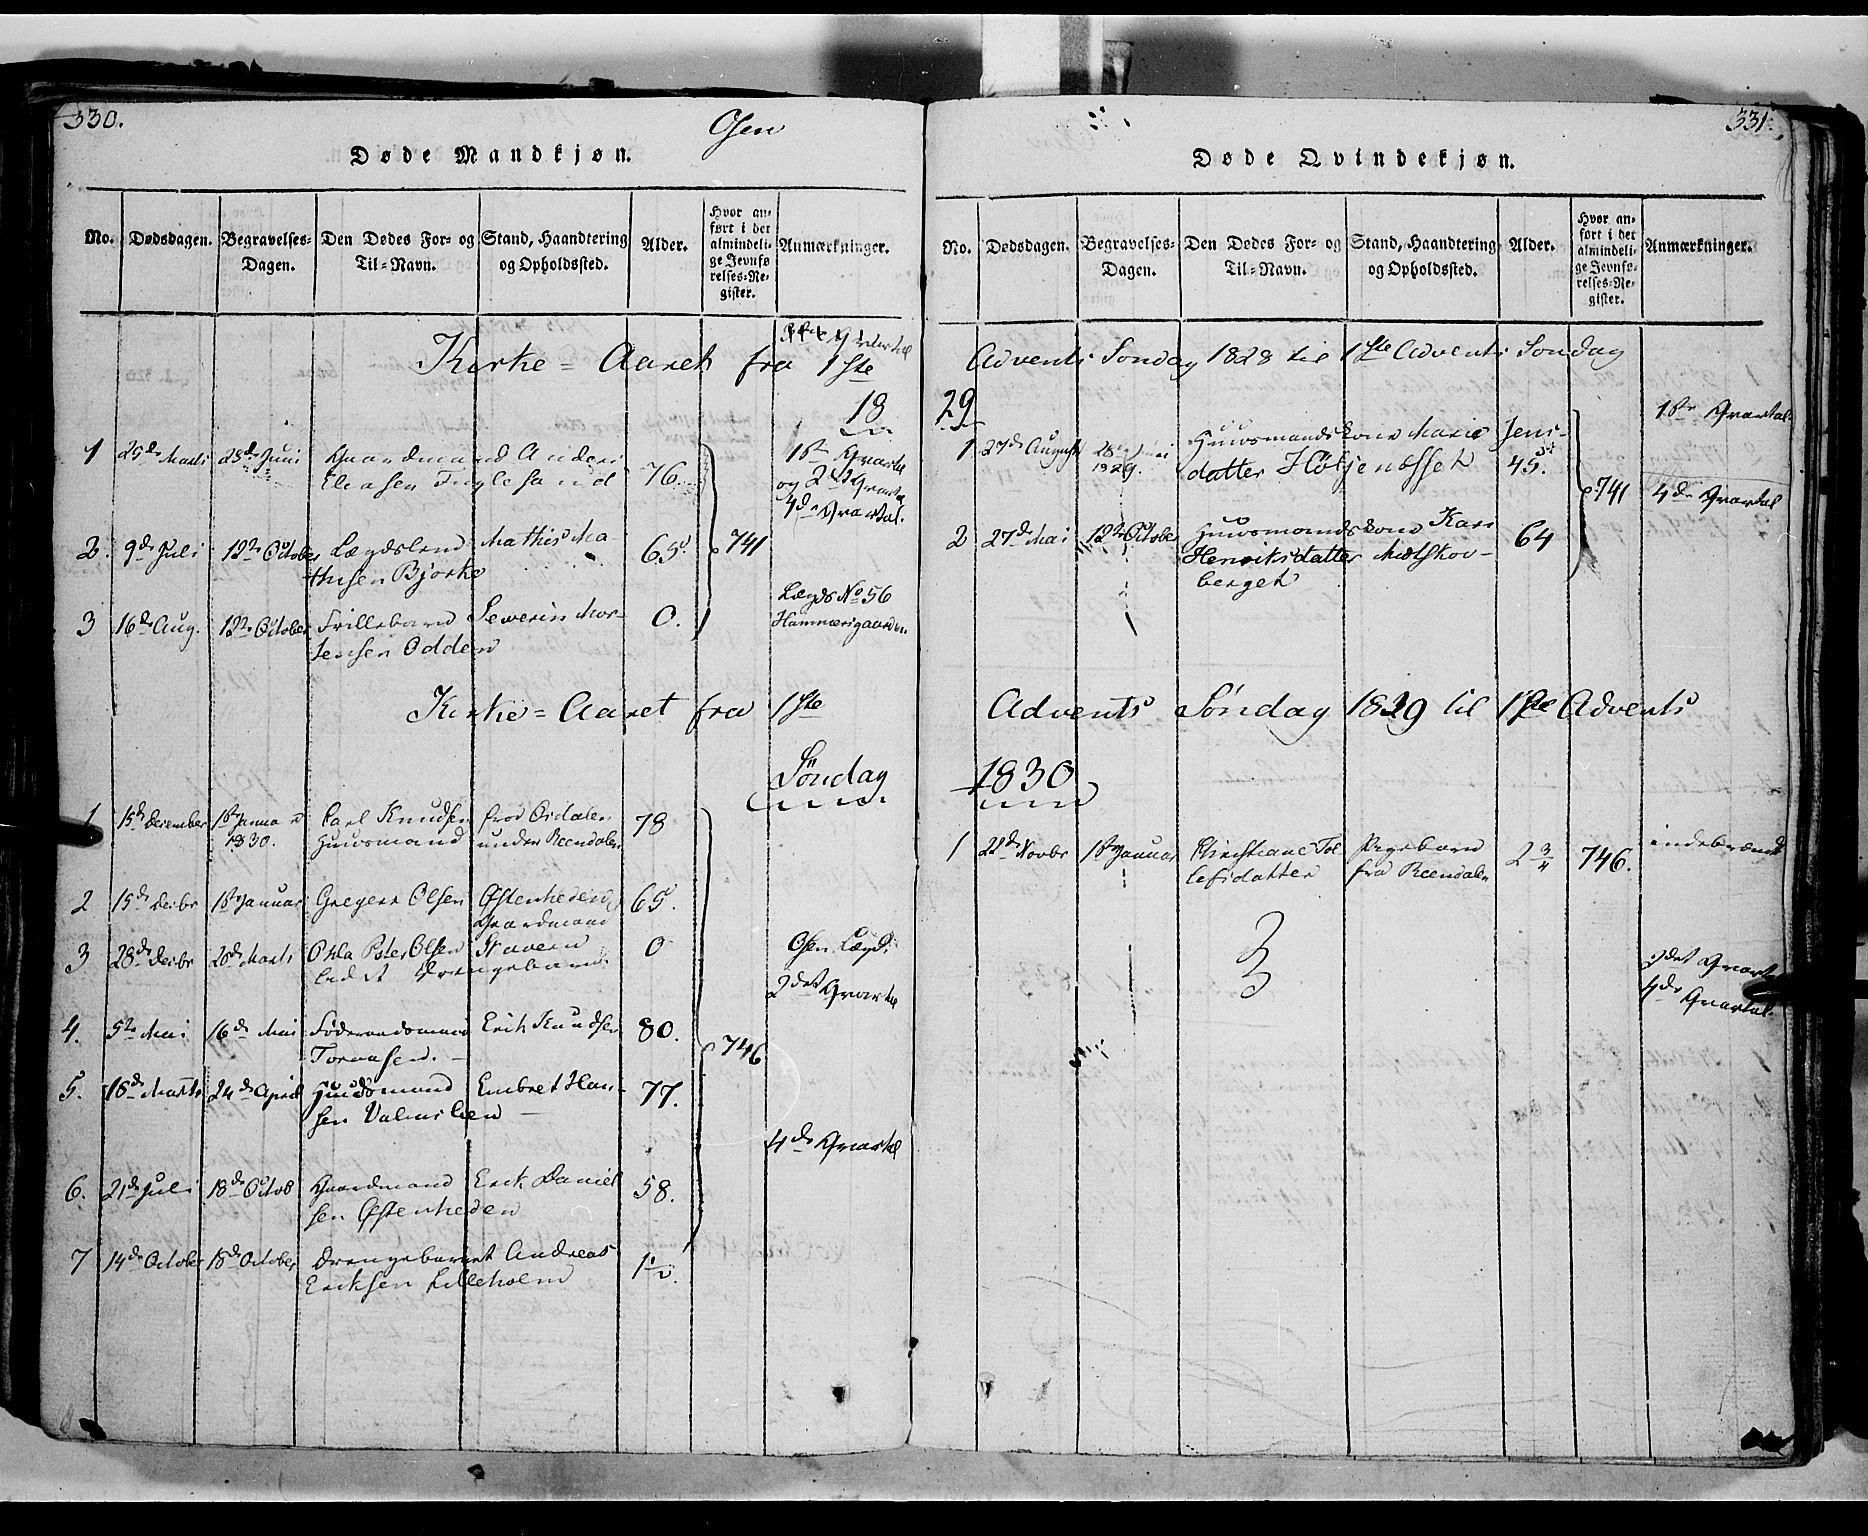 330.
Osen
Døde Mandkjøn.
No. Dødsdagen. Begravelses-Dagen. Den Dødes For- og Til-Navn. Stand, Haandtering og Opholdssted. Alder. Hvor anført i det almindelige Jevnførelses-Register. Anmærkninger.
Kirke = Aaret fra 1ste
18
1 Marts Juni Gaardmand Anders 76. 1ste Qvartal
Elensen og 2det Qvartal
4de Qvartal.
2. 9de Juli 12te October Lægdslem Mathis Ma 65. 741
thisen Bjørke
Lægds No 56
3 16de Aug. 12te October Frillebarn Severin Mor- 0. Hammersgaarden
tensen Odden
Kirke = Aaret fra 1ste
Søndag
1 15de December 1ste Januar Carl Knudsen 78
1830. Huusmand under Reendalen
2 15de Decbr 1ste Januar Gregers Olsen Østenheden 65.
Gaardmand
3 28de Decbr 28de Marts Peter Olsen 0 Osen Lægd.
Drengebarn 2det Qvartal
4. 5te Mai 16de Mai Føderaadsmand Erik Knudsen 80. 746
5. 18de Marts 24de April Huusmand Embret Han- 77.
sen
4de Qvartal
6. 21de Juli 18de Octob Gaardmand Erik Daniel 58.
sen Østenheden
7 14de October 18de October Drengebarnet Andreas 1½.
Eriksen Lilleholm
331.
Døde Qvindekjøn.
No. Dødsdagen. Begravelses-Dagen. Den Dødes For- og Til-Navn. Stand, Haandtering og Opholdssted. Alder. Hvor anført i det almindelige Jevnførelses-Register. Anmærkninger.
Advents Søndag 1828 til 1ste Advents Søndag
29
1ste Qvartal
1 27de August Huusmandskone Marie Jens-
1829. datter 45. 741 4de Qvartal
2 27de Mai 12te October Huusmandskone Kari 64
Henriksdatter Mølskov-
berget
Advents Søndag 1829 til 1ste Advents
1830
1 22de Novbr 1ste Januar Christiane Tol Pigebarn 2 ¾ 746. indebrændt
lefsdatter fra Reendalen
2det Qvartal
4de Qvartal.